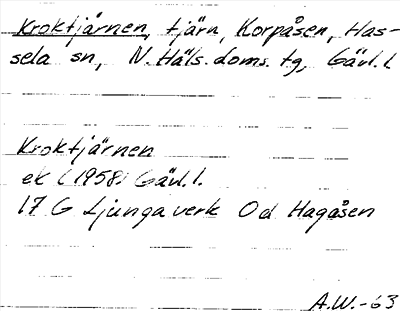 Kroktjärnen, tjärn, Korpåsen, Has-
sela sn, N. Häls. doms. tg, Gävl. l.
Kroktjärnen
ek (1958) Gävl. l.
17 G Ljungaverk Od Hagåsen
A.W. - 63